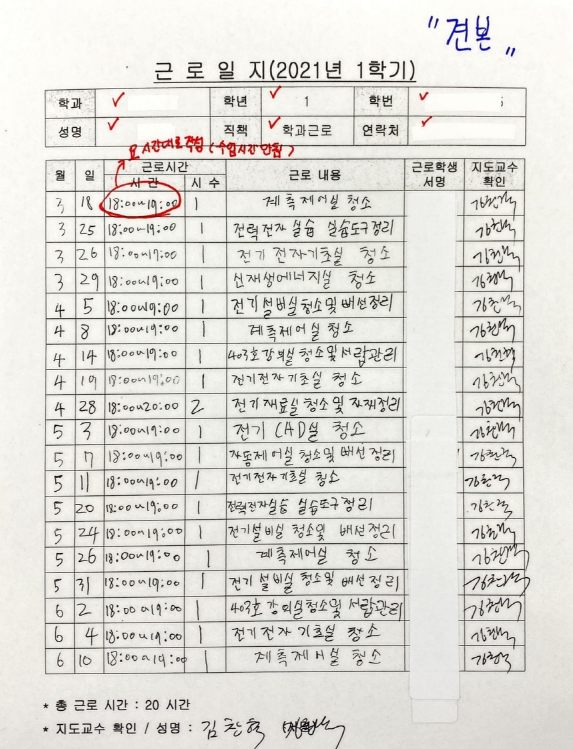 "견본"
근 로 일 지(2021년 1학기)
학과 학년 1 학번
성명 직책 학과근로 연락처
요 시간대로 작성 (수업시간 안됨)
월 일 근로시간 근로 내용 근로학생 서명 지도교수 확인
시 간 시 수
3 18 18:00~19:00 1 계측제어실 청소
3 25 18:00~19:00 1 전력전자 실습 실습도구정리
3 26 18:00~19:00 1 전기 전자기초실 청소
3 29 18:00~19:00 1 신재생에너지실 청소
4 5 18:00~19:00 1 전기설비실 청소및 배선정리
4 8 18:00~19:00 1 계측제어실 청소
4 14 18:00~19:00 1 403호 강의실 청소및 서랍관리
4 19 18:00~19:00 1 전기전자기초실 청소
4 28 18:00~20:00 2 전기재료실 청소및 자재정리
5 3 18:00~19:00 1 전기 CAD실 청소
5 7 18:00~19:00 1 자동제어실 청소및 배선정리
5 11 18:00~19:00 1 전기전자기초실 청소
5 20 18:00~19:00 1 전력전자실습 실습도구정리
5 24 18:00~19:00 1 전기설비실 청소및 배선정리
5 26 18:00~19:00 1 계측제어실 청소
5 31 18:00~19:00 1 전기 설비실 청소및 배선정리
6 2 18:00~19:00 1 403호 강의실 청소및 서랍관리
6 4 18:00~19:00 1 전기전자 기초실 청소
6 10 18:00~19:00 1 계측제어실 청소
* 총 근로 시간 : 20 시간
* 지도교수 확인 / 성명 :